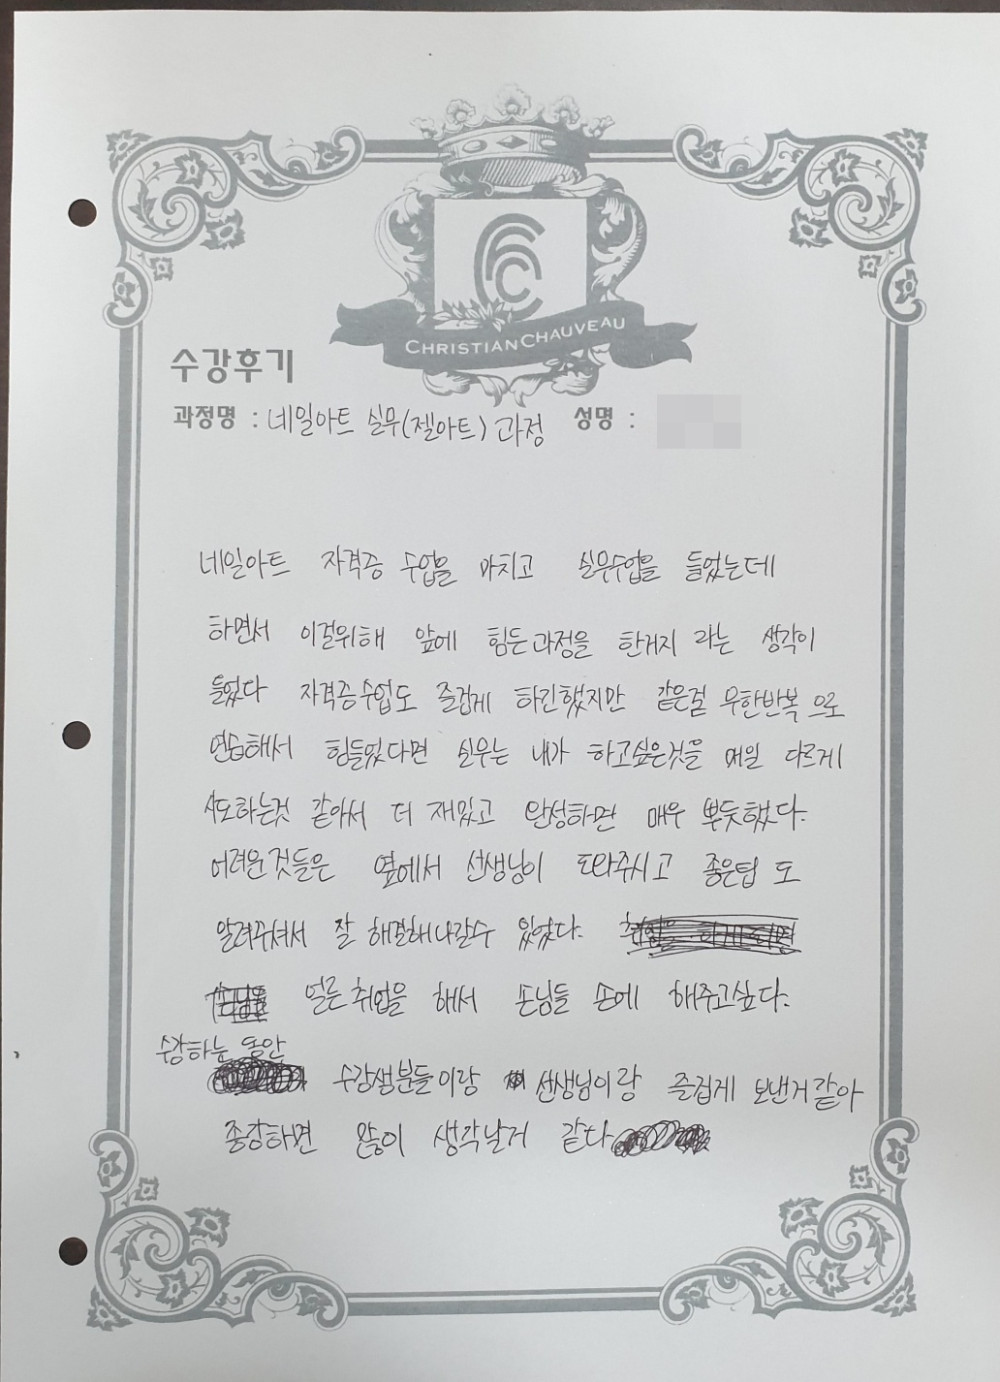 CHRISTIAN CHAUVEAU
수강후기
과정명 : 네일아트 실무(젤아트) 과정 성명 :
네일아트 자격증 수업을 마치고 실무수업을 들었는데
하면서 이걸위해 앞에 힘든과정을 한거지 라는 생각이
들었다 자격증수업도 즐겁게 하긴했지만 같은걸 무한반복 으로
연습해서 힘들었다면 실무는 내가 하고싶은것을 매일 다르게
시도하는것 같아서 더 재밌고 완성하면 매우 뿌듯했다.
어려운것들은 옆에서 선생님이 도와주시고 좋은팁 도
알려주셔서 잘 해결해나갈수 있었다.
얼른 취업을 해서 손님들 손에 해주고싶다.
수강하는 동안
수강생분들이랑 선생님이랑 즐겁게 보낸거같아
종강하면 많이 생각날거 같다